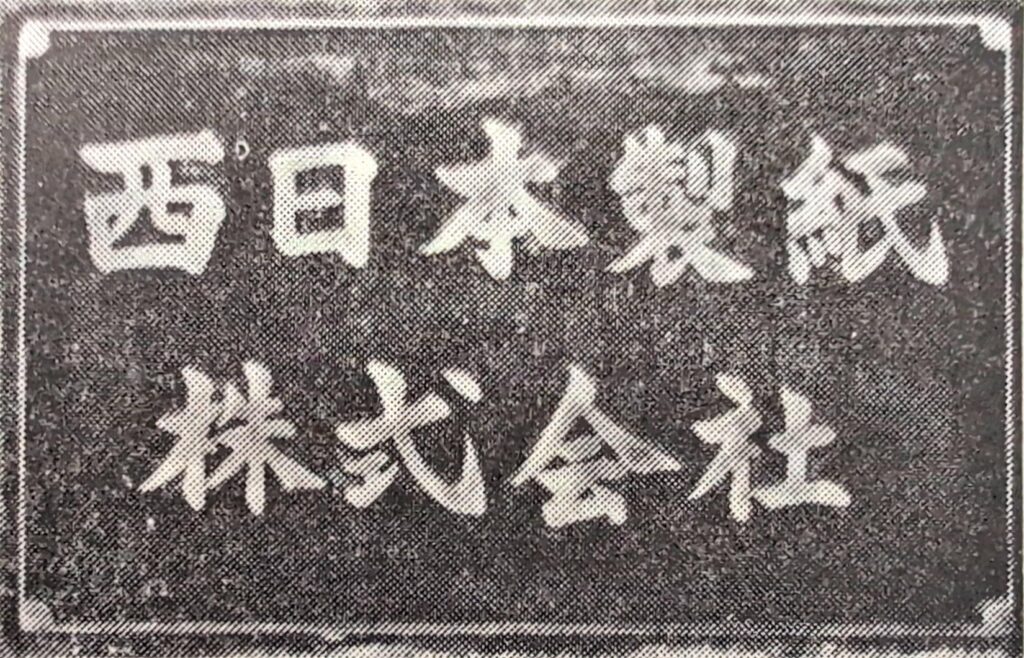 西日本製紙
株式会社